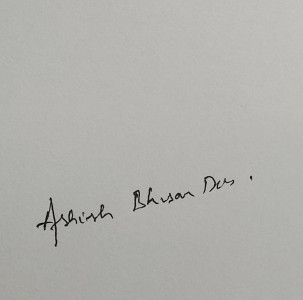 Ashish Bhusan Das.